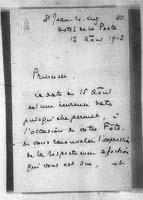 St Jean de Luz 40
Hotel de la Poste
12 Août 1912
Princesse,
La date du 15 Août
est une heureuse date
puisqu'elle permet, à
l'occasion de votre Fête,
de vous renouveler l'expression
de la respectueuse affection
qui vous est due, et